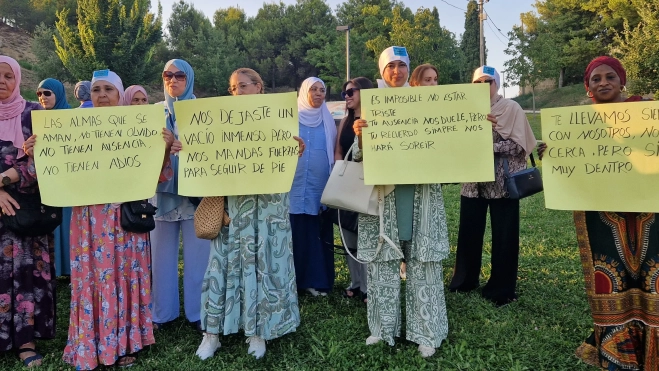 LAS ALMAS QUE SE
AMAN, NO TIENEN OLVIDO
NO TIENEN AUSENCIA,
NO TIENEN ADIOS
NOS DEJASTE UN
VACÍO INMENSO PERO
NOS MANDAS FUERZAS
PARA SEGUIR DE PIE
ES IMPOSIBLE NO ESTAR
TRISTE
TU AUSENCIA NOS DUELE, PERO
TU RECUERDO SIEMPRE NOS
HARÁ SONREIR
TE LLEVAMOS
CON NOSOTROS, NO
CERCA, PERO SÍ
MUY DENTRO